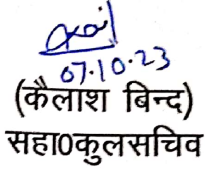 07.10.23
(कैलाश बिन्द)
सहा0कुलसचिव